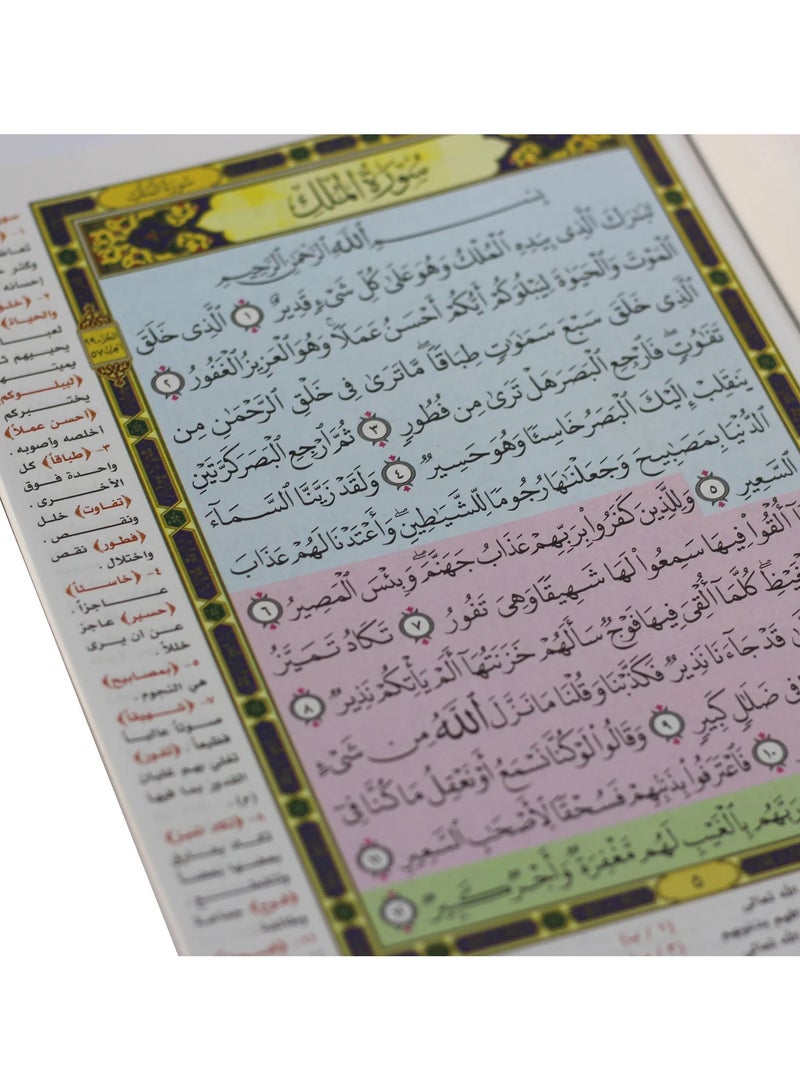 سورة الملك
سُورَةُ المُلْكِ
بِسْمِ ٱللَّهِ ٱلرَّحْمَٰنِ ٱلرَّحِيمِ
تَبَٰرَكَ ٱلَّذِى بِيَدِهِ ٱلْمُلْكُ وَهُوَ عَلَىٰ كُلِّ شَىْءٍ قَدِيرٌ ١ ٱلَّذِى خَلَقَ
ٱلْمَوْتَ وَٱلْحَيَوٰةَ لِيَبْلُوَكُمْ أَيُّكُمْ أَحْسَنُ عَمَلًا ۚ وَهُوَ ٱلْعَزِيزُ ٱلْغَفُورُ ٢
ٱلَّذِى خَلَقَ سَبْعَ سَمَٰوَٰتٍ طِبَاقًا ۖ مَّا تَرَىٰ فِى خَلْقِ ٱلرَّحْمَٰنِ مِن
تَفَٰوُتٍ ۖ فَٱرْجِعِ ٱلْبَصَرَ هَلْ تَرَىٰ مِن فُطُورٍ ٣ ثُمَّ ٱرْجِعِ ٱلْبَصَرَ كَرَّتَيْنِ
يَنقَلِبْ إِلَيْكَ ٱلْبَصَرُ خَاسِئًا وَهُوَ حَسِيرٌ ٤ وَلَقَدْ زَيَّنَّا ٱلسَّمَآءَ
ٱلدُّنْيَا بِمَصَٰبِيحَ وَجَعَلْنَٰهَا رُجُومًا لِّلشَّيَٰطِينِ ۖ وَأَعْتَدْنَا لَهُمْ عَذَابَ
ٱلسَّعِيرِ ٥ وَلِلَّذِينَ كَفَرُوا۟ بِرَبِّهِمْ عَذَابُ جَهَنَّمَ ۖ وَبِئْسَ ٱلْمَصِيرُ ٦
أُلْقُوا۟ فِيهَا سَمِعُوا۟ لَهَا شَهِيقًا وَهِىَ تَفُورُ ٧ تَكَادُ تَمَيَّزُ
ٱلْغَيْظِ ۖ كُلَّمَآ أُلْقِىَ فِيهَا فَوْجٌ سَأَلَهُمْ خَزَنَتُهَآ أَلَمْ يَأْتِكُمْ نَذِيرٌ ٨
قَدْ جَآءَنَا نَذِيرٌ فَكَذَّبْنَا وَقُلْنَا مَا نَزَّلَ ٱللَّهُ مِن شَىْءٍ
فِى ضَلَٰلٍ كَبِيرٍ ٩ وَقَالُوا۟ لَوْ كُنَّا نَسْمَعُ أَوْ نَعْقِلُ مَا كُنَّا فِىٓ
١٠ فَٱعْتَرَفُوا۟ بِذَنۢبِهِمْ فَسُحْقًا لِّأَصْحَٰبِ ٱلسَّعِيرِ ١١
رَبَّهُم بِٱلْغَيْبِ لَهُم مَّغْفِرَةٌ وَأَجْرٌ كَبِيرٌ ١٢
٥
والحياة﴾
يحييهم
﴿ليبلوكم
يختبركم
﴿أحسن عملاً﴾
أخلصه وأصوبه .
٣- ﴿طباقاً﴾ كل
واحدة فوق
الأخرى .
﴿تفاوت﴾ خلل
ونقص .
﴿فطور﴾ نقص
واختلال .
٤- ﴿خاسئاً﴾
عاجزاً .
﴿حسير﴾ عاجز
عن ان يرى
خللاً .
٥- ﴿بمصابيح﴾
هي النجوم .
٧- ﴿شهيقاً﴾
صوتاً عالياً
فظيعاً . ﴿تفور﴾
تغلي بهم غليان
القدور بما فيها